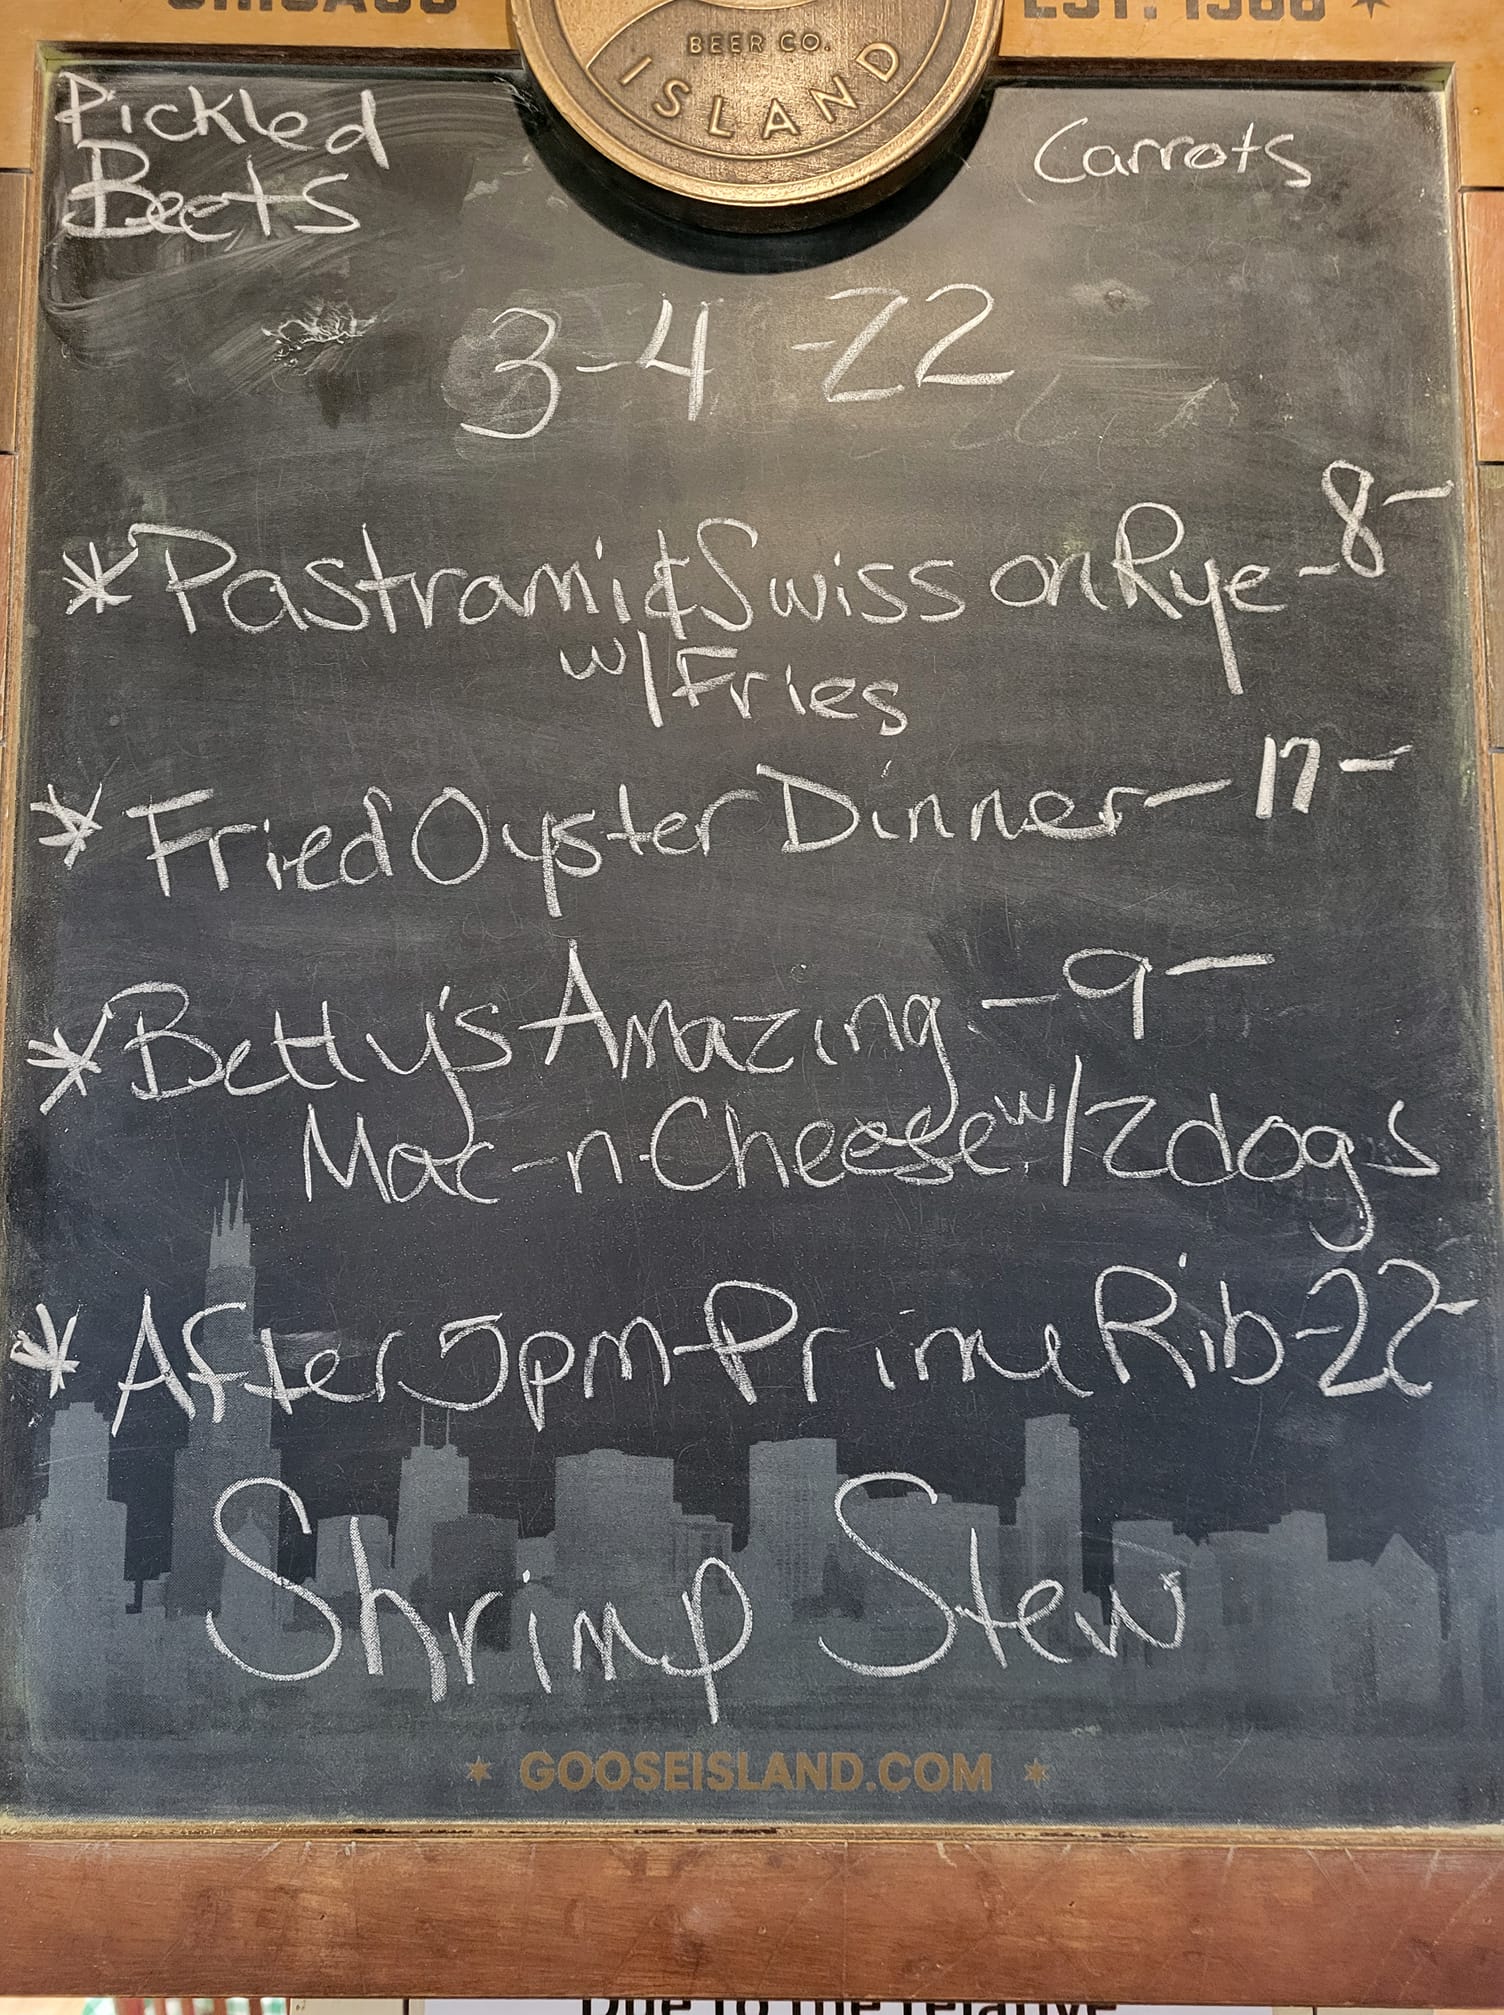 CHICAGO
EST. 1988
BEER CO.
ISLAND
Pickled
Beets
Carrots
3-4-22
* Pastrami & Swiss on Rye - 8 -
w/ Fries
* Fried Oyster Dinner - 17 -
* Betty's Amazing - 9 -
Mac-n-Cheese w/ 2 dogs
* After 5pm - Prime Rib - 22 -
Shrimp Stew
GOOSEISLAND.COM
Due to the relative